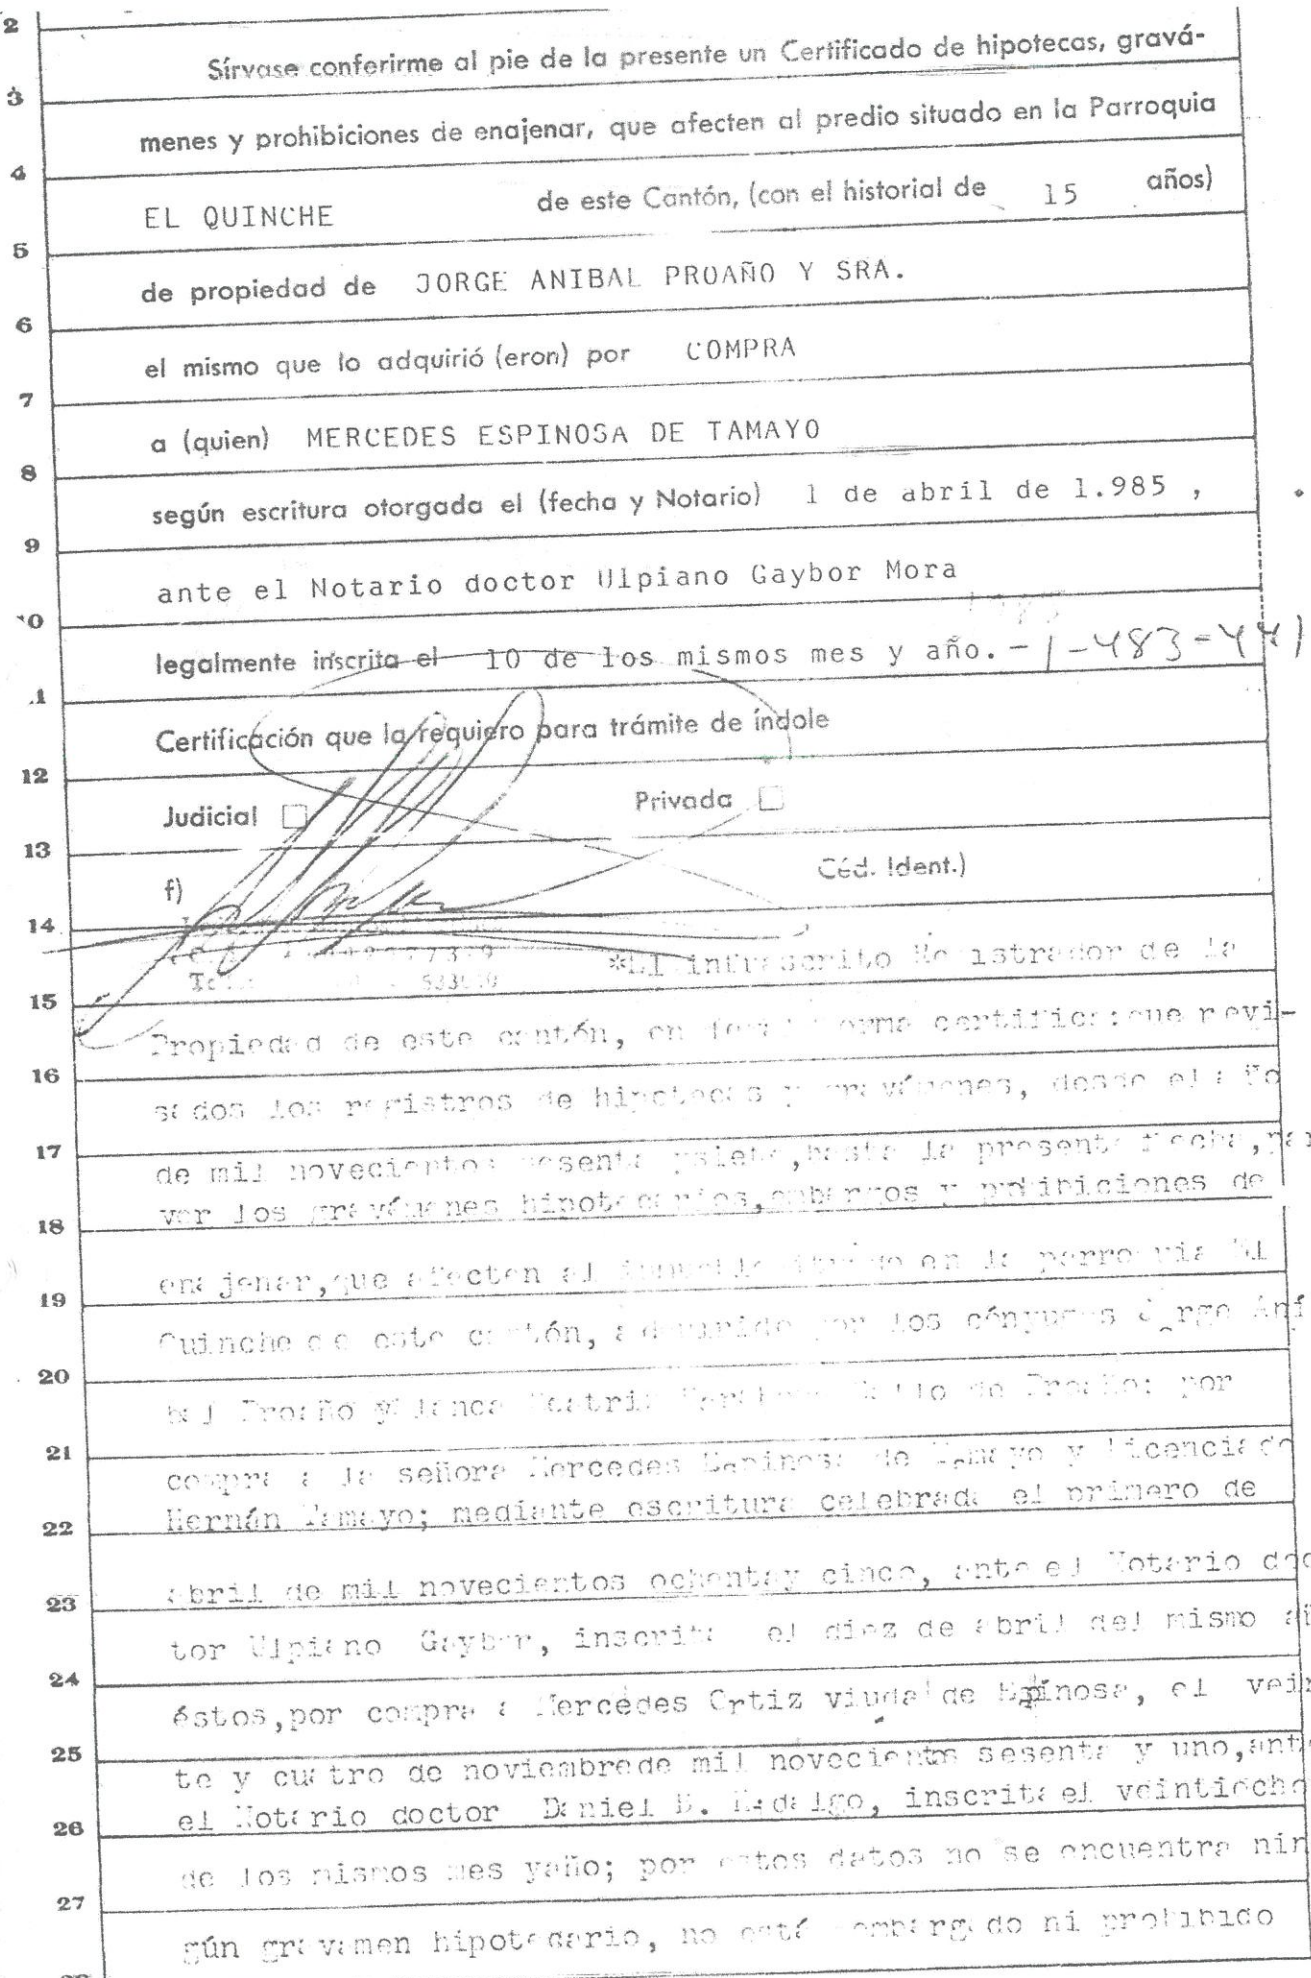 2
Sírvase conferirme al pie de la presente un Certificado de hipotecas, gravá-
3
menes y prohibiciones de enajenar, que afecten al predio situado en la Parroquia
4
EL QUINCHE de este Cantón, (con el historial de 15 años)
5
de propiedad de JORGE ANIBAL PROAÑO Y SRA.
6
el mismo que lo adquirió (eron) por COMPRA
7
a (quien) MERCEDES ESPINOSA DE TAMAYO
8
según escritura otorgada el (fecha y Notario) 1 de abril de 1.985 , .
9
ante el Notario doctor Ulpiano Gaybor Mora
10
legalmente inscrita el 10 de los mismos mes y año. - 1-483-441
11
Certificación que la requiero para trámite de índole
12
Judicial Privada
13
f) Céd. Ident.)
14
*El infrascrito Registrador de la
15
Propiedad de este cantón, en legal forma certifica:que revi-
16
sados los registros de hipotecas y gravámenes, desde el año
17
de mil novecientos sesenta ysiete,hasta la presente fecha,par
ver los gravámenes hipotecarios,embargos y prohibiciones de
18
enajenar,que afecten al inmueble situado en la parroquia El
19
Quinche de este cantón, adquirido por los cónyuges Jorge Aní
20
bal Proaño y Blanca Beatriz de Proaño; por
21
compra a la señora Mercedes Espinosa de Tamayo y licenciado
Hernán Tamayo; mediante escritura celebrada el primero de
22
abril de mil novecientos ochentay cinco, ante el Notario doc
23
tor Ulpiano Gaybor, inscrita el diez de abril del mismo añ
24
éstos,por compra a Mercedes Ortiz viuda de Espinosa, el vein
25
te y cuatro de noviembrede mil novecientos sesenta y uno,ante
el Notario doctor Daniel B. Hidalgo, inscrita el veintiocho
26
de los mismos mes yaño; por estos datos no se encuentra nin
27
gún gravamen hipotecario, no está embargado ni prohibido